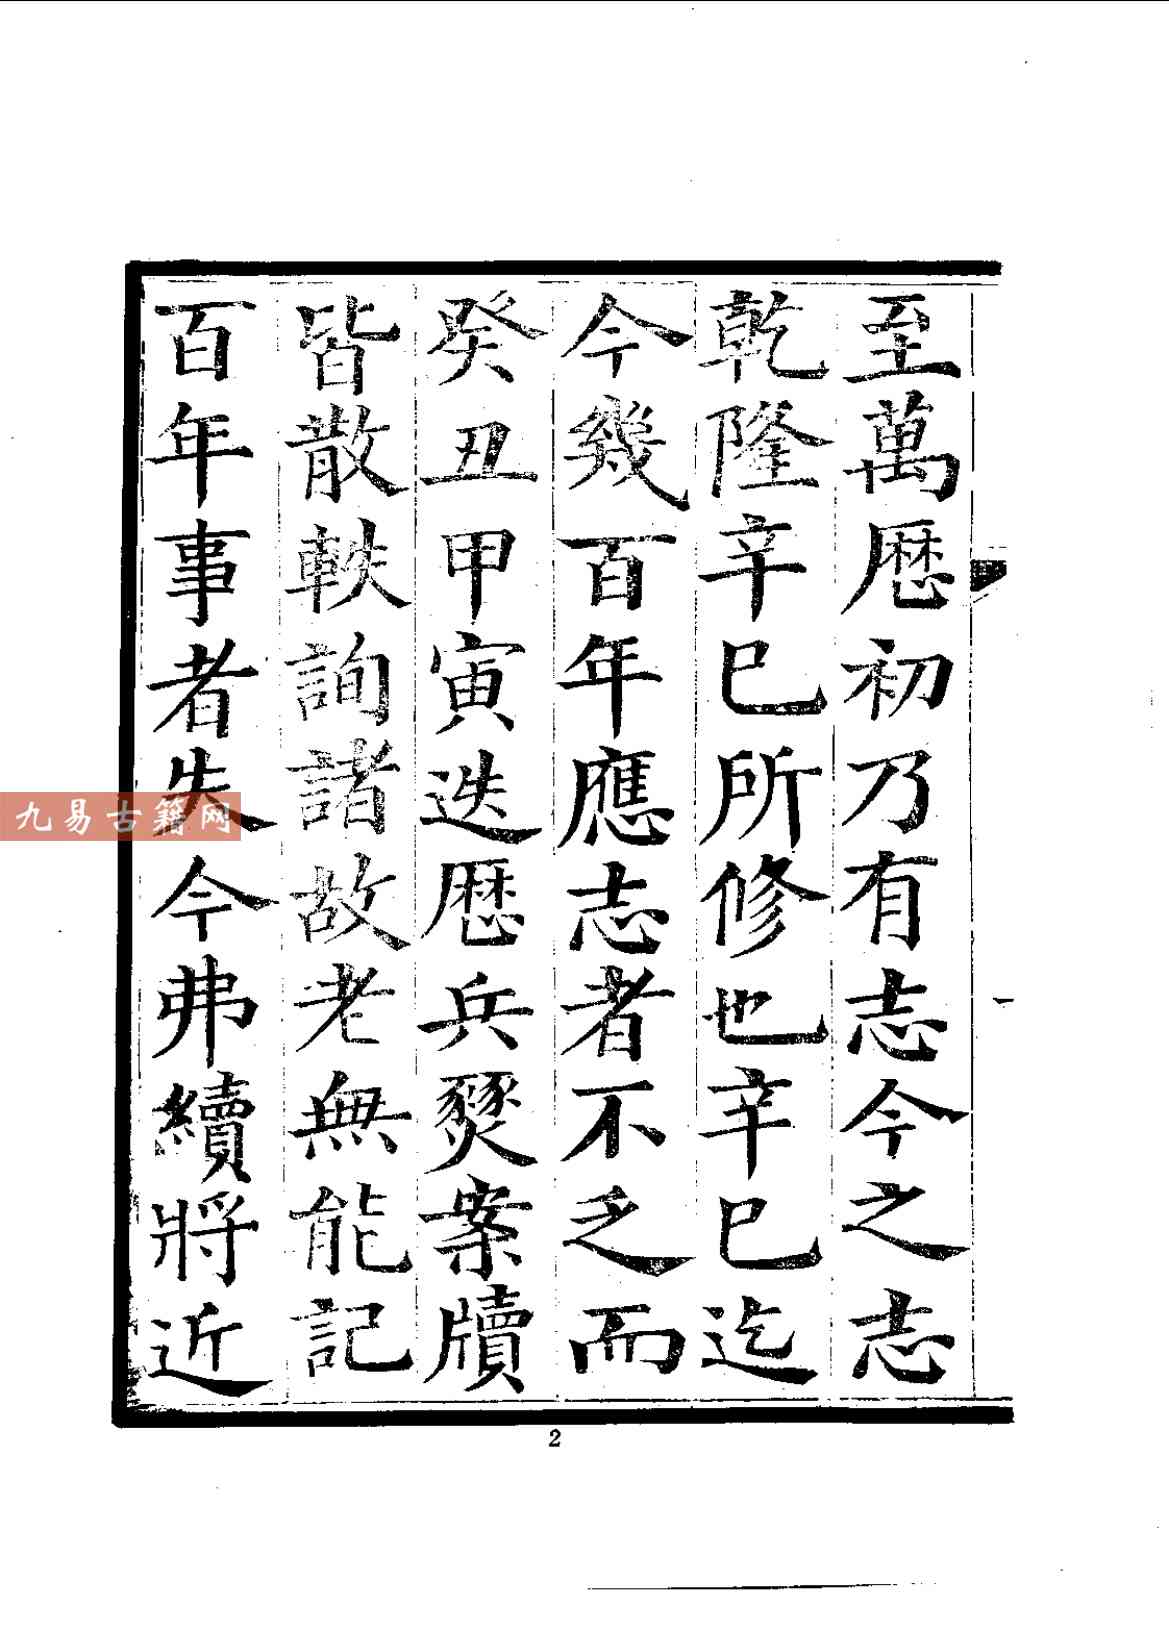 至萬厯初乃有志今之志
乾隆辛巳所修也辛巳迄
今幾百年應志者不乏而
癸丑甲寅迭厯兵燹案牘
皆散軼詢諸故老無能記
百年事者失今弗續將近
2
九易古籍网